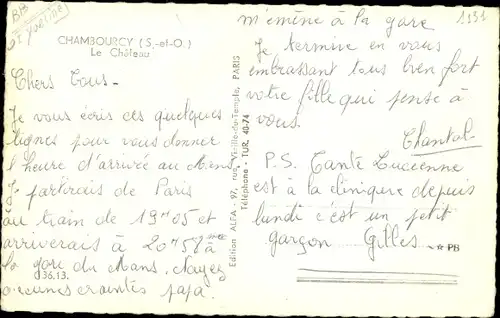 BB
Yvelines
CHAMBOURCY (S.-et-O.)
Le Château
Chers Tous-
Je vous écris ces quelques
lignes pour vous donner
l'heure d'arrivée au Mans.
Je partirais de Paris
au train de 19H05 et
arriverais à 20H58
la gare du Mans. N'ayez
36.13.
aucunes craintes papa.
Edition ALFA - 97, rue Vieille-du-Temple, PARIS
Téléphone : TUR. 40-74
1951
m'emène à la gare
Je termine en vous
embrassant tous bien fort
votre fille qui pense à
vous.
Chantal
P.S. Tante Lucienne
est à la clinique depuis
lundi c'est un petit
garçon Gilles
PB